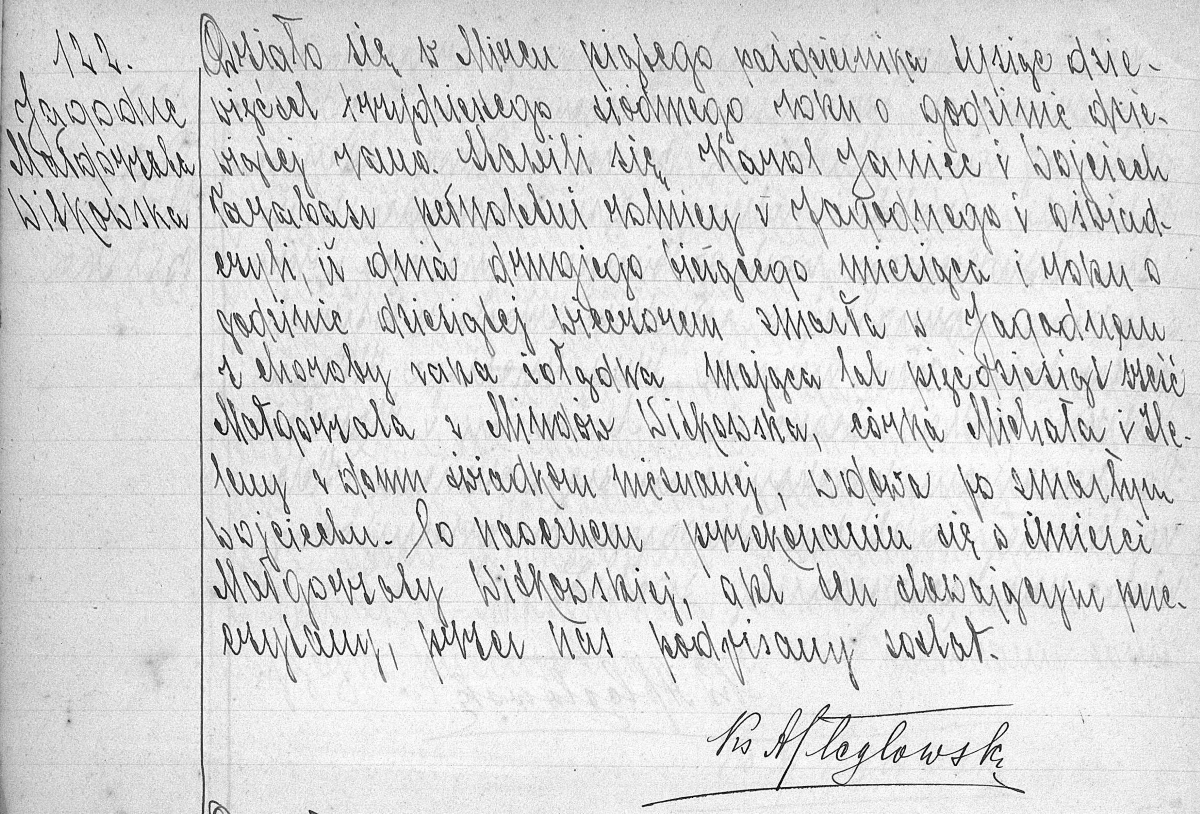 122.
Jagodne
Małgorzata
Witkowska
Działo się w Mircu piątego października tysiąc dzie-
więćset trzydziestego siódmego roku o godzinie dzie-
wiątej rano. Stawili się, Karol Janiec i Wojciech
pełnoletni rolnicy z Jagodnego i oświad-
czyli, iż dnia drugiego bieżącego miesiąca i roku o
godzinie dziesiątej wieczorem zmarła w Jagodnem
z choroby raka żołądka mająca lat pięćdziesiąt sześć
Małgorzata z Witkowska, córka Michała i He-
leny z domu świadkom nieznanej, wdowa po zmarłym
Wojciechu. Po naocznem przekonaniu się o śmierci
Małgorzaty Witkowskiej, akt ten stawającym prze-
czytany, przez nas podpisany został.
Ks A